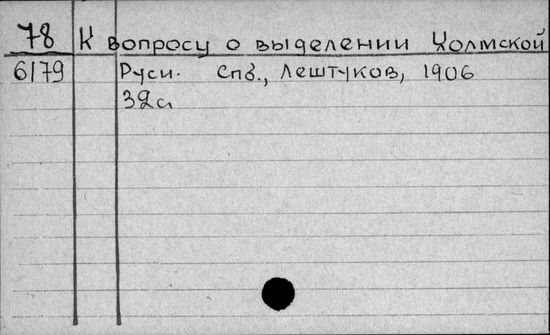 78 К вопросу о выделении Холмской
6179 Руси. Спб., Лештуков, 1906
32с.